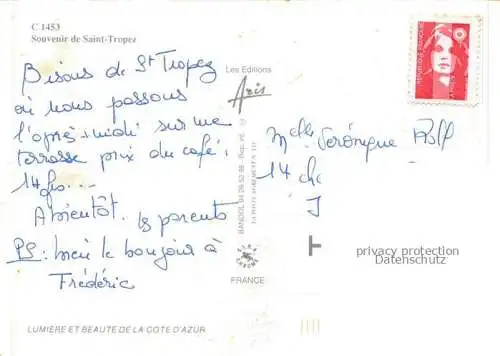 C 1453
Souvenir de Saint-Tropez
Bisous de St Tropez
où nous passons
l'après-midi sur une
terrasse prix du café :
14 frs...
A bientôt. les parents
PS : mei le bonjour à
Frédéric
Les Editions
Aris
BANDOL 04 29 52 88
FRANCE
REPUBLIQUE FRANÇAISE
Melle Véronique
14
privacy protection
Datenschutz
LUMIÈRE ET BEAUTÉ DE LA COTE D'AZUR